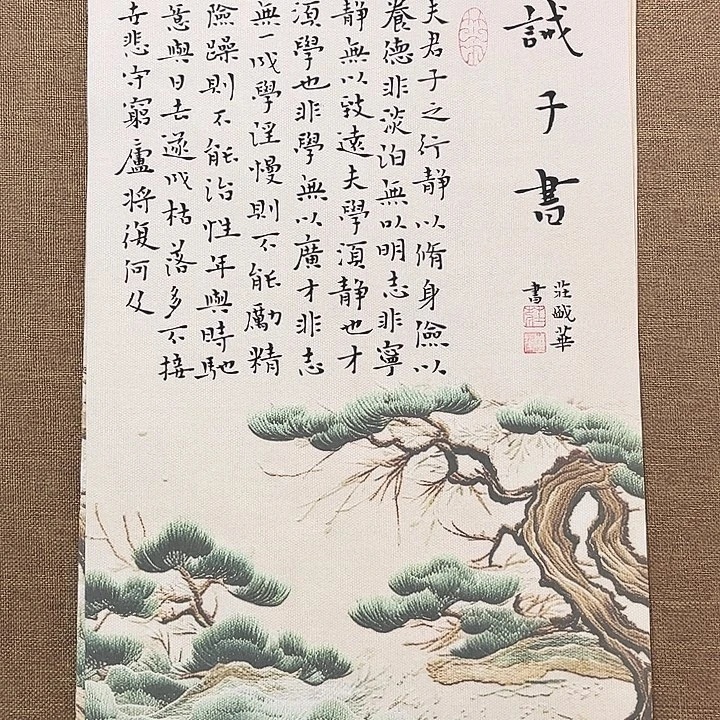 誡子書
莊華
書
夫君子之行靜以脩身儉以
養德非淡泊無以明志非寧
靜無以致遠夫學須靜也才
須學也非學無以廣才非志
無以成學淫慢則不能勵精
險躁則不能治性年與時馳
意與日去遂成枯落多不接
世悲守窮廬將復何及